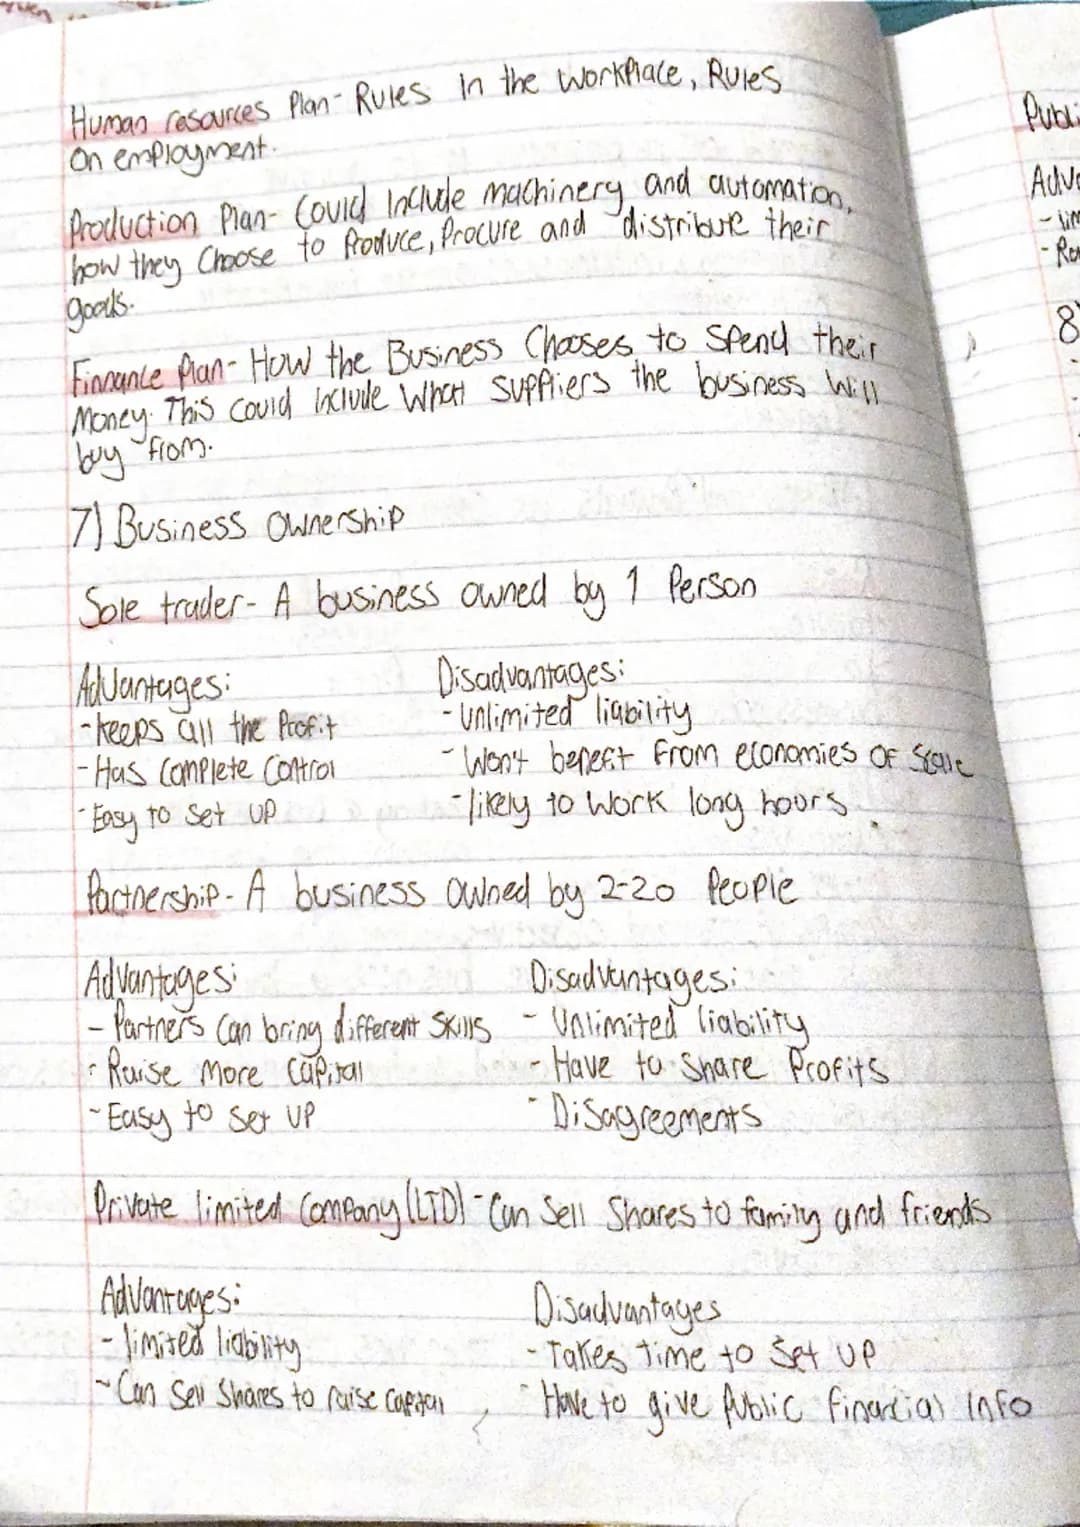 Human resources Plan - Rules In the Workplace, Rules
On employment.
Production Plan - Could Include machinery and automation,
how they Choose to Produce, Procure and distribute their
goods.
Finnance Plan - How the Business Chooses to Spend their
Money. This could include What suppliers the business will
buy from.
7) Business Ownership
Sole trader - A business owned by 1 Person
Advantages:
- keeps all the Profit
- Has Complete Control
- Easy to set up
Disadvantages:
- Unlimited liability
- Won't benefit from economies of scale
- likely to work long hours
Partnership - A business owned by 2-20 People
Advantages:
- Partners Can bring different skills
- Raise More Capital
- Easy to Set UP
Disadvantages:
- Unlimited liability
- Have to Share Profits
- Disagreements
Private limited Company (LTD) - Can Sell Shares to family and friends
Advantages:
- limited liability
- Can Sell Shares to raise Capital
Disadvantages
- Takes Time to Set UP
- Have to give Public financial Info
Adva
8)